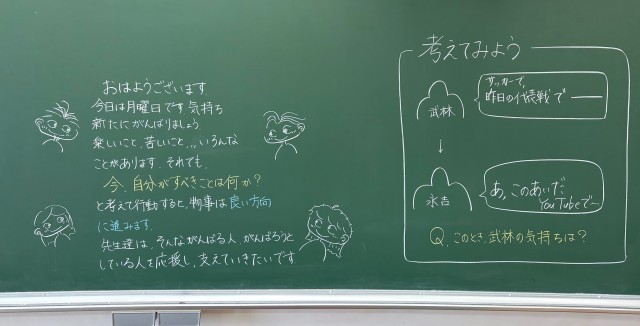 おはようございます
今日は月曜日です 気持ち
新たにがんばりましょう
楽しいこと、苦しいこと、、、いろんな
ことがあります。それでも、
今、自分がすべきことは何か?
と考えて行動すると、物事は良い方向
に進みます。
先生達は、そんながんばる人、がんばろうと
している人を応援し、支えていきたいです
考えてみよう
武林
サッカーで、
昨日の代表戦で ー
↓
永吉
あ、このあいだ
YouTubeで~
Q. このとき、武林の気持ちは?